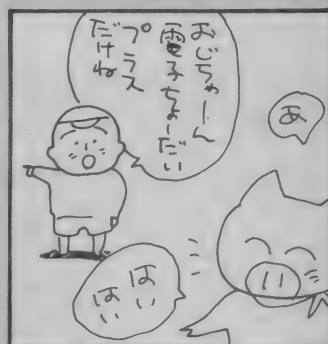 おじちゃーん
電子ちょーだい
プラス
だけね
あ
はい
はい